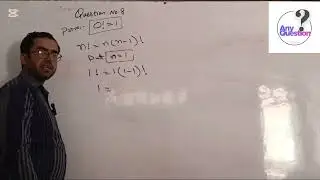 Question No:8
Prove: 0! = 1
n! = n(n-1)!
Put n=1
1! = 1(1-1)!
1 =
Any
Question
?